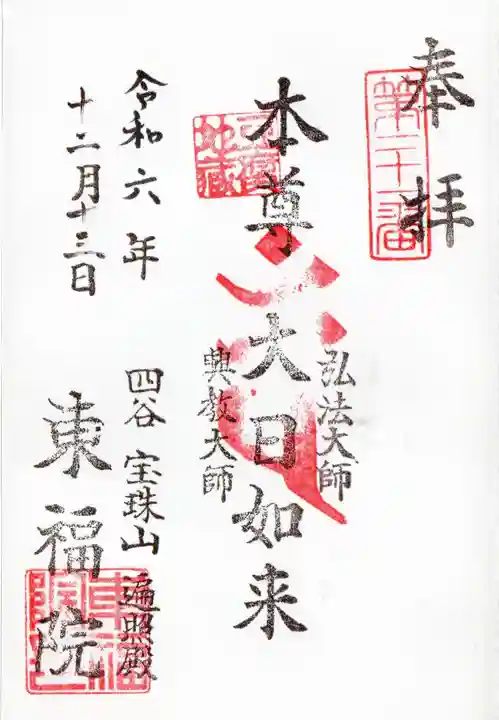 奉拝
第二十一番
弘法大師
本尊 大日如来
興教大師
令和六年
十二月十三日
四谷 宝珠山
遍照殿
東福院